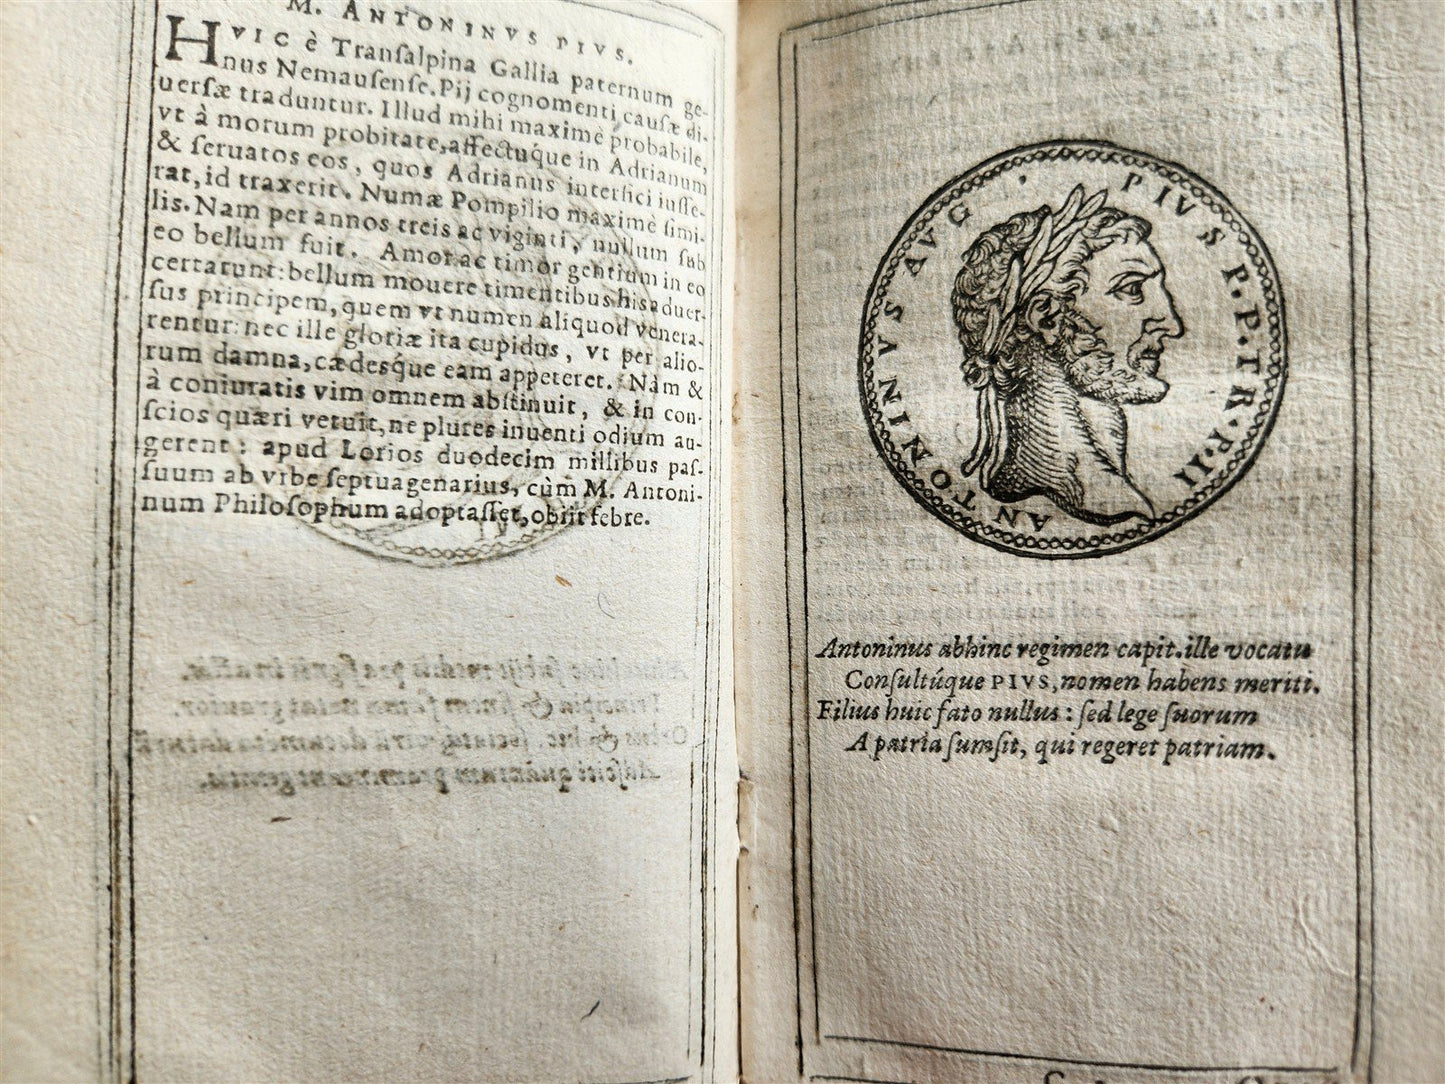 M. ANTONINVS PIVS.
HVIC è Tranſalpina Gallia paternum ge-
nus Nemauſenſe. Pij cognomenti cauſæ di-
uerſæ traduntur. Illud mihi maximè probabile,
vt à morum probitate, affectúque in Adrianum
& ſeruatos eos, quos Adrianus interfici iuſſe-
rat, id traxerit. Numæ Pompilio maximè ſimi-
lis. Nam per annos treis ac viginti, nullum ſub
eo bellum fuit. Amor ac timor gentium in eo
certarunt: bellum mouere timentibus his aduer-
ſus principem, quem vt numen aliquod venera-
rentur: nec ille gloriæ ita cupidus, vt per alio-
rum damna, cædeſque eam appeteret. Nàm &
à coniuratis vim omnem abſtinuit, & in con-
ſcios quæri vetuit, ne plures inuenti odium au-
gerent: apud Lorios duodecim millibus paſ-
ſuum ab vrbe ſeptuagenarius, cùm M. Antoni-
num Philoſophum adoptaſſet, obiit febre.
ANTONINVS AVG. PIVS P. P. TR. P. II
Antoninus abhinc regimen capit. ille vocatu
Conſultúque PIVS, nomen habens meriti.
Filius huic fato nullus: ſed lege ſuorum
A patria ſumſit, qui regeret patriam.